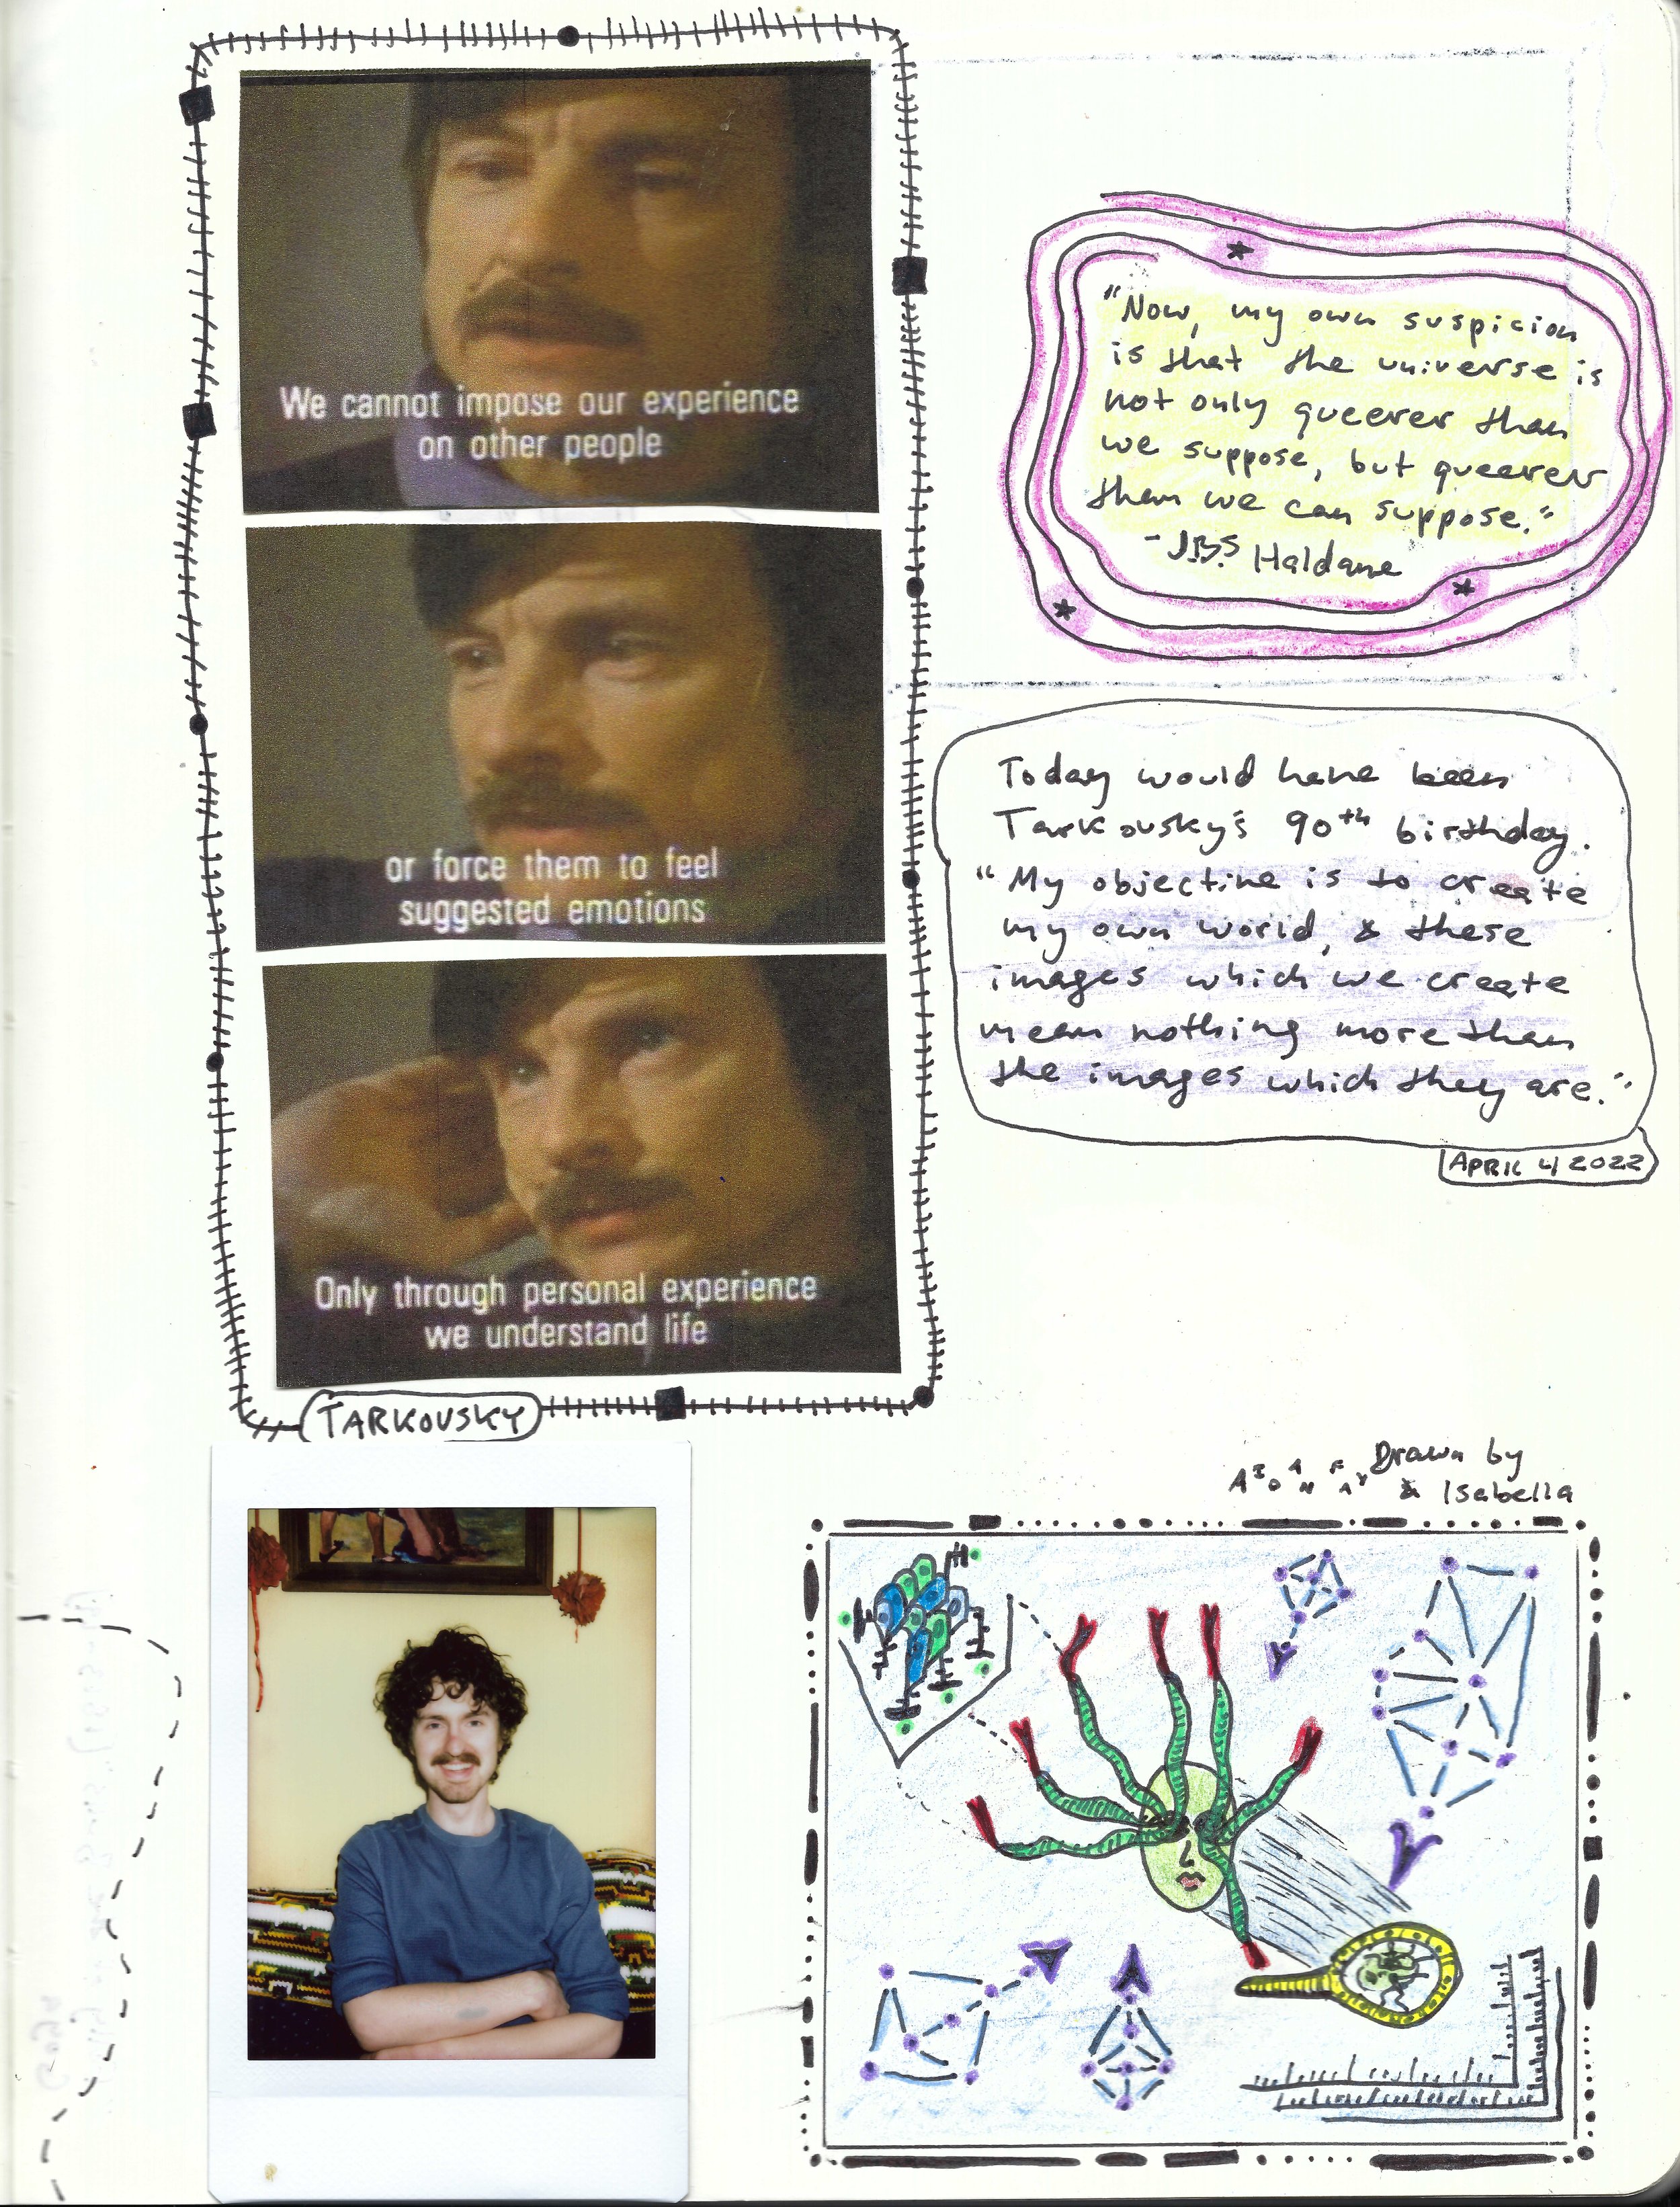 We cannot impose our experience
on other people
or force them to feel
suggested emotions
Only through personal experience
we understand life
TARKOVSKY
"Now, my own suspicion
is that the universe is
not only queerer than
we suppose, but queerer
than we can suppose."
- J.B.S. Haldane
Today would have been
Tarkovsky's 90th birthday.
"My objective is to create
my own world, & these
images which we create
mean nothing more than
the images which they are."
APRIL 4 2022
Drawn by
& Isabella